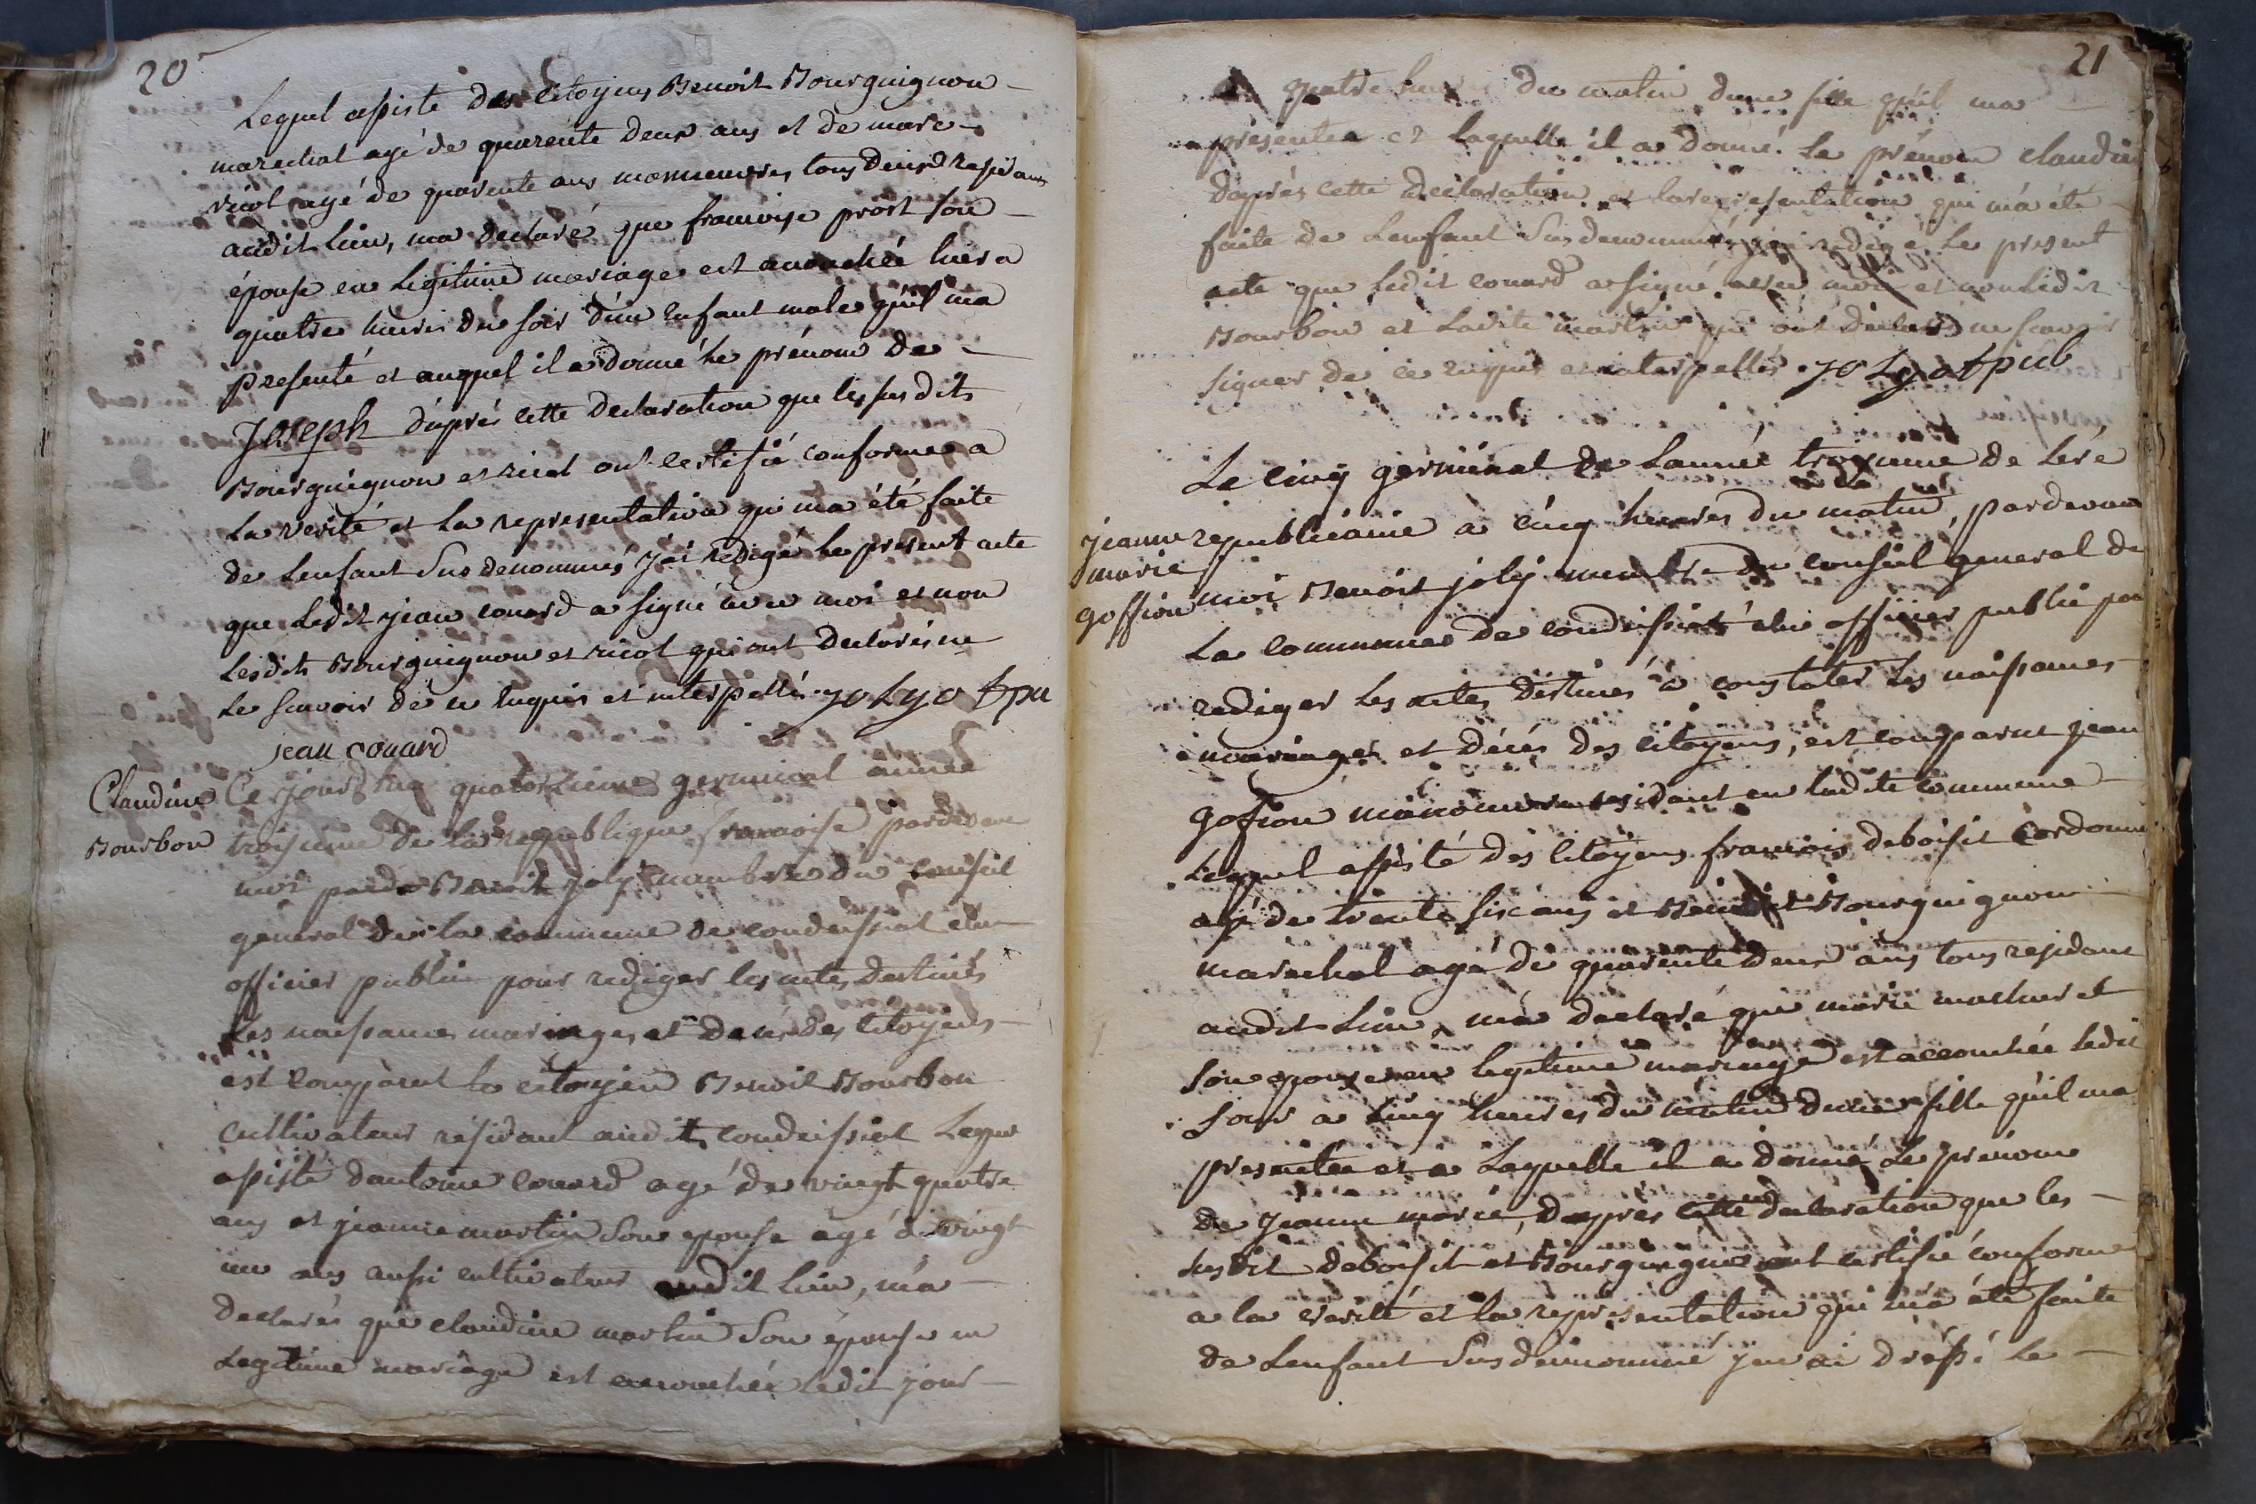 20
Lequel assisté des citoyens Benoit Bourguignon
marechal agé de quarente deux ans et de marc
ricol agé de quarente ans manneuvres tous deux residans
audit lieu, ma declaré que francoise prost son
épouse en legitime mariage est accouchée hiera
quatre heures du soir d'un enfant male qu'il ma
presenté et auquel il a donné le prénom de
Joseph d'aprés cette declaration que les susdits
Bourguignon et ricol ont certifié conforme a
La verité et La representation qui ma été faite
de Lenfant Sus denommés j'ai redigé le présent acte
que Ledit jean couard a signé avec moi et non
Lesdits Bourguignon et ricol qui ont declarés ne
le savoir de ce requis et interpellés. joly of pu
jean couard
Claudine
Bourbon
Ce jourdhui quatorzieme germinal année
troisieme de la republique francoise pardevant
moi Benoit joly membre du conseil
general de la commune de condeissiat élu
officier public pour rediger les actes destinés
Les naissances mariages et decés des citoyens
est comparut le citoyen Benoit Bourbon
cultivateur résidant audit condeissiat Lequel
assisté dantoine couard agé de vingt quatre
ans et jeanne martin Son epouse agé de vingt
un ans aussi cultivateur audit lieu, m'a
declarés que claudine martin Son épouse en
Legitime mariage est accouchée ledit jour
21
a quatre heures du matin dune fille qu'il ma
présentée et laquelle il a donné le prénom claudine
daprés cette declaration et la representation qui m'a été
faite de Lenfant Sus denommé j'ai redigé Le present
acte que Ledit couard a signé avec moi et non Ledit
Bourbon et Ladite martin qui ont declarés ne scavoir
signer de ce requis et interpellés. joly of pub
Le cinq germinal de Lannée troisieme de Lére
jeanne
marie
goffion
republicaine a cinq heures du matin, pardevant
moi Benoit joly membre du conseil general de
La commune de condeissiat élu officier public pour
rediger les actes destinés a constater les naissances
mariages et décés des citoyens, est comparut jean
gofion manoeuvre residant en ladite commune
Lequel assisté des citoyens francois deboisit Cordonnier
agé de trente six ans et Benoit Bourguignon
marechal agé de quarente deux ans tous residant
audit lieu, ma declaré que marie
son epouse en legitime mariage est accouchée ledit
jour a cinq heures du matin dune fille qu'il ma
presentée et a Laquelle il a donné Le prénom
de jeanne marie, dapres cette declaration que les
susdit deboisit et Bourguignon ont certifié conforme
a la verité et la representation qui ma été faite
de Lenfant Susdennommé j'en ai dréssé Le